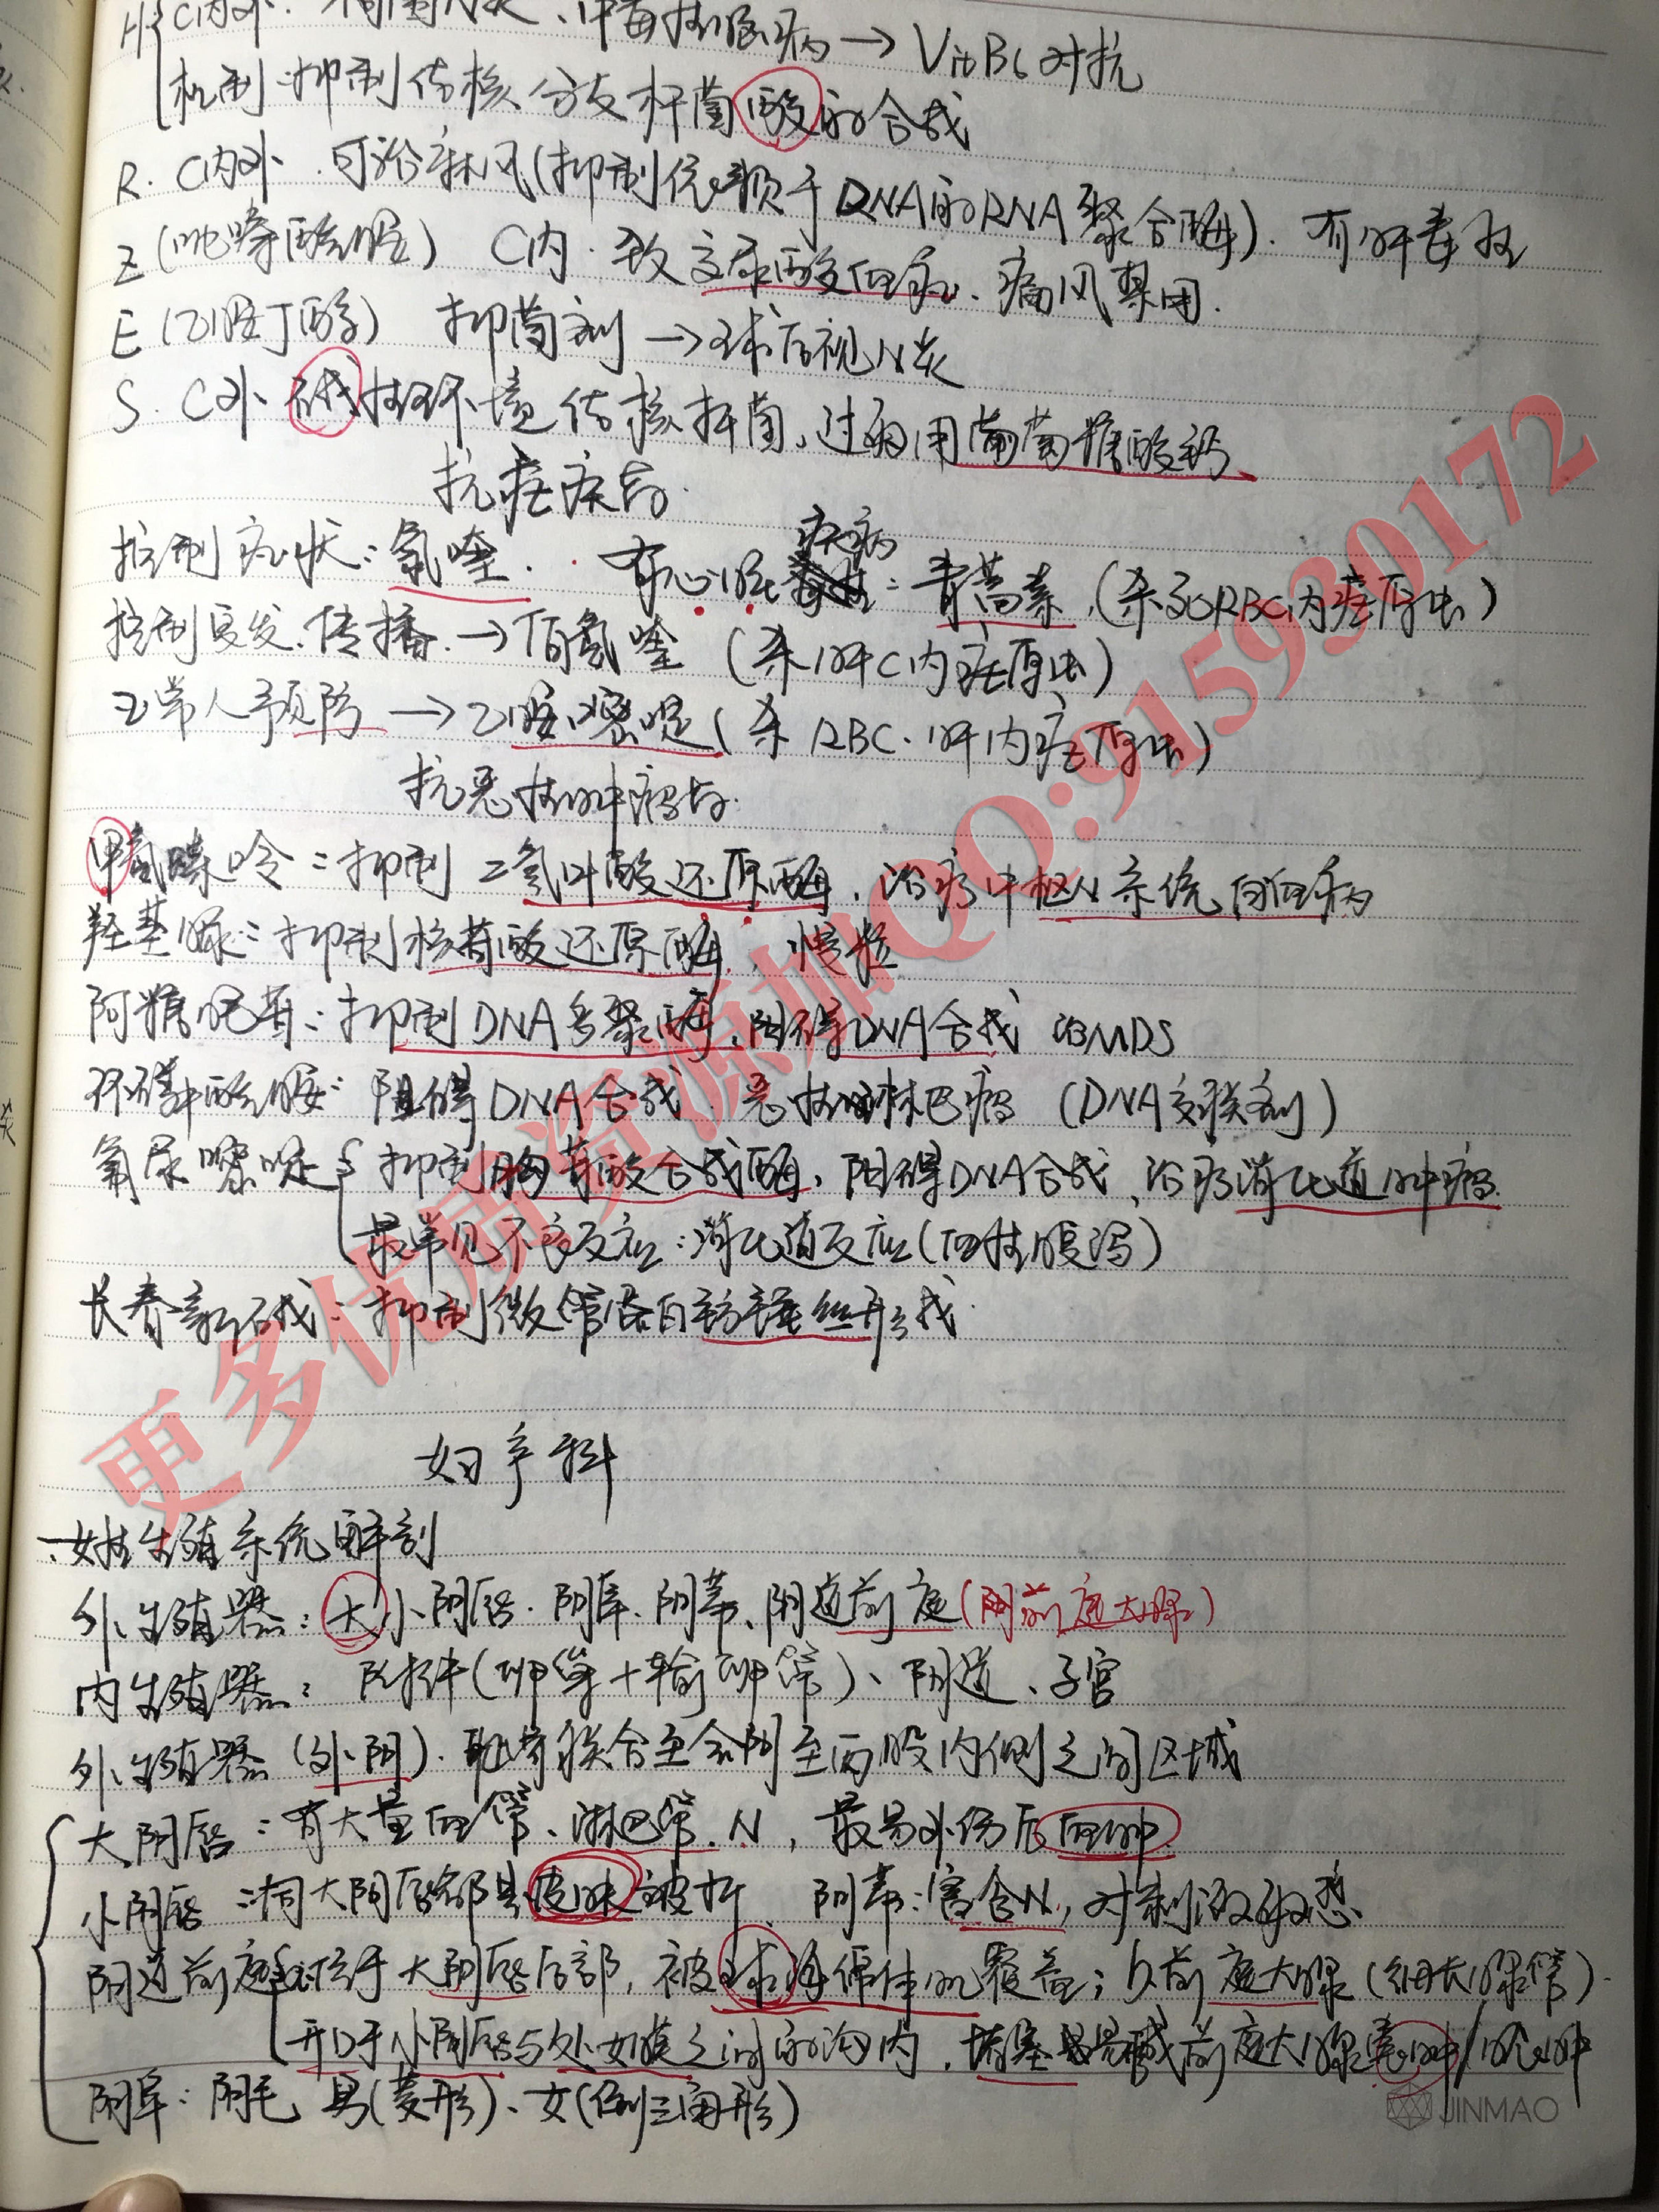 H C内外. 周围N炎、中毒性脑病→VitB6对抗
机制:抑制结核分支杆菌酸的合成
R. C内外.可治麻风(抑制依赖于DNA的RNA聚合酶).有肝毒性
Z(吡嗪酰胺) C内.致高尿酸血症、痛风禁用.
E(乙胺丁醇) 抑菌剂→球后视N炎
S. C外 碱性环境结核杆菌,过敏用葡萄糖酸钙、
抗疟疾药.
控制症状:氯喹. 有心脏疾病:青蒿素,(杀死RBC内疟原虫)
控制复发、传播.→伯氨喹(杀肝C内疟原虫)
正常人预防→乙胺嘧啶(杀RBC.肝内疟原虫)
抗恶性肿瘤药.
甲氨蝶呤:抑制二氢叶酸还原酶,治疗中枢N系统白血病
羟基脲:抑制核苷酸还原酶,慢粒
阿糖胞苷:抑制DNA多聚酶,阻碍DNA合成 治MDS
环磷酰胺:阻碍DNA合成.恶性淋巴瘤(DNA交联剂)
氟尿嘧啶 抑制胸苷酸合成酶,阻碍DNA合成,治疗消化道肿瘤.
最常见不良反应:消化道反应(血性腹泻)
长春新碱:抑制微管蛋白纺锤丝形成.
妇产科
一.女性生殖系统解剖
外生殖器:大小阴唇.阴阜.阴蒂、阴道前庭(阴前庭大腺)
内生殖器:附件(卵巢+输卵管)、阴道、子宫
外生殖器(外阴).耻骨联合至会阴至两股内侧之间区域
大阴唇:有大量血管、淋巴管.N,最易外伤后血肿.
小阴唇:同大阴唇都是皮肤皱折 阴蒂:富含N,对刺激敏感
阴道前庭 位于大阴唇后部,被球海绵体肌覆盖;为前庭大腺(细长腺管).
开口于小阴唇与处女膜之间的沟内,堵塞易成前庭大腺囊肿/脓肿
阴阜:阴毛 男(菱形)、女(倒三角形)
更多优质资源加QQ:915930172
JINMAO